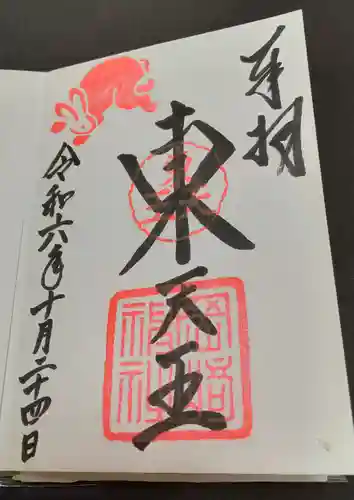 奉拝
東天王
岡﨑神社
令和六年十月二十四日